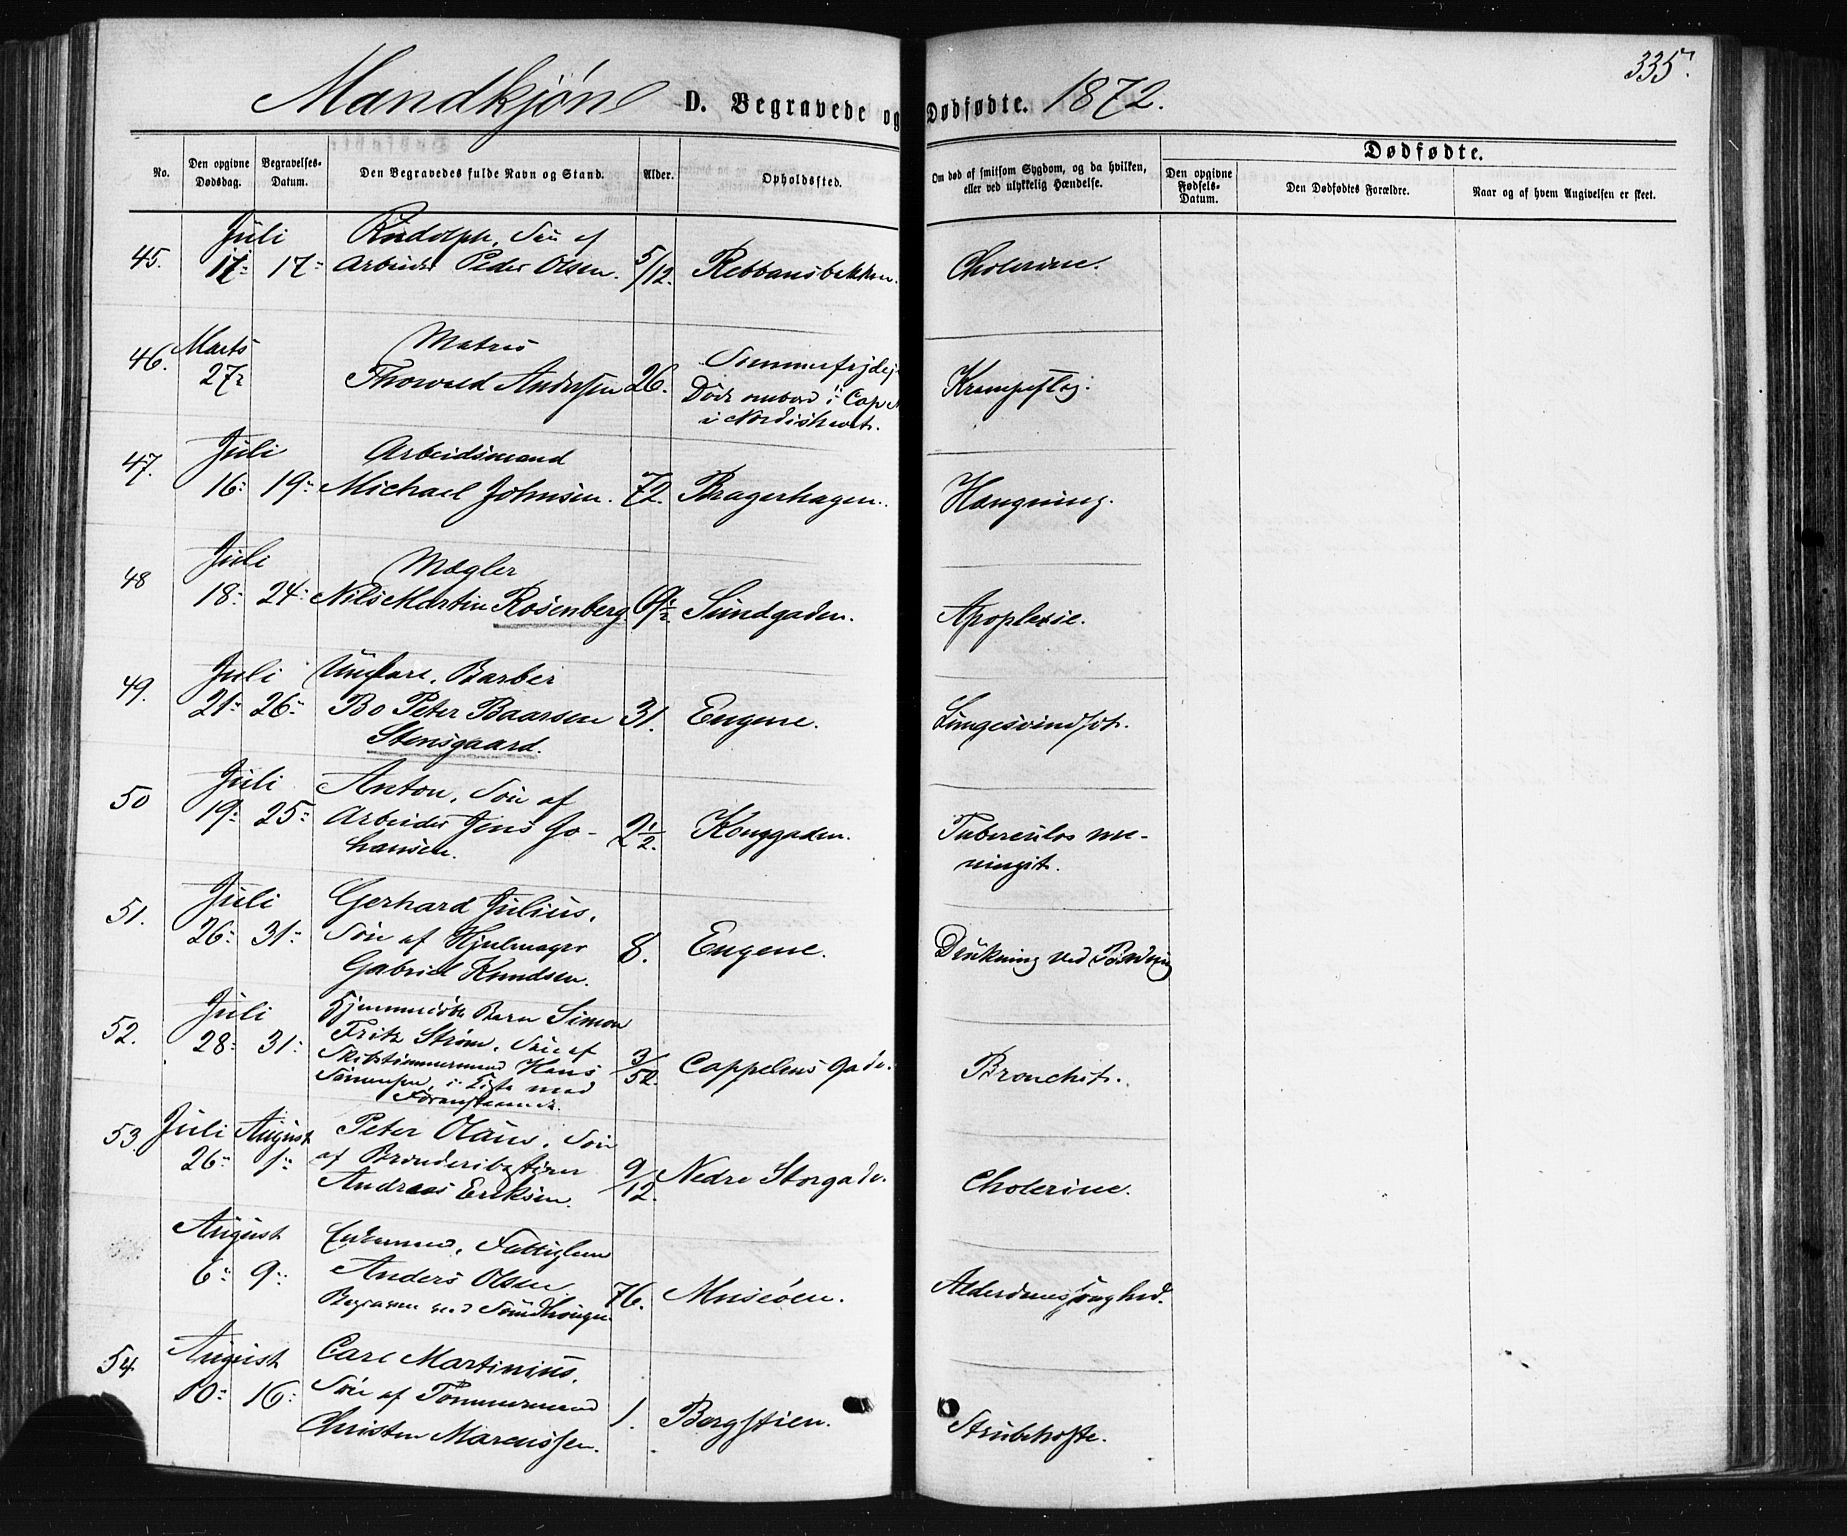 335.
Mandkjøn D. Begravede og Dødfødte. 1872.
No. Den opgivne Dødsdag. Begravelses-Datum. Den Begravedes fulde Navn og Stand. Alder. Opholdssted. Om død af smitsom Sygdom, og da hvilken, eller ved ulykkelig Hændelse. Dødfødte.
Den opgivne Fødsels-Datum. Den Dødfødtes Forældre. Naar og af hvem Angivelsen er skeet.
Juli Rudolph, Søn af
45. 11 17 Arbeider Peder Olsen. 5/12. Rebbansbakken. Cholerine.
46. Marts Matros
27 Thorvald Andersen 26. Krampeslag.
Døde ombord i Cap.
i Nordishavet.
47. Juli Arbeidsmand
16 19 Michael Johnsen. 72. Bragerhagen. Hængning.
48 Juli Mægler
18 24 Nils Martin Rosenberg. Sundgaden. Apoplexie.
49. Juli Ungkarl, Barber
21 26 Bo Peter Baarsen 31. Eugene. Lungesvindsot.
Stensgaard.
50 Juli Anton, Søn af
19 25 Arbeider Jens Jo- 2 1/2. Konggaden. Tuberculos me-
hansen. ningit.
51. Juli Gerhard Julius,
26 31 Søn af Hjulmager 8. Eugene. Drukning ved Badning
Gabriel Knudsen.
52. Juli Hjemmedøbt Barn Simon
28 31 Fritz Strøm, Søn af 3/52. Cappelens Gade. Bronchit.
Skibstømmermand Hans
53 Juli August Peter Olaus, Søn
26 1 af 9/12. Nedre Storgade. Cholerine.
Andreas Eriksen.
August Enkemand, Fattiglem
6 9 Anders Olsen 76. Museøen. Alderdomssvaghed.
Begraven ved
54 August Carl Martinius,
10 16 Søn af Tømmermand 1. Bergstien. Strubehoste.
Christen Marcussen.